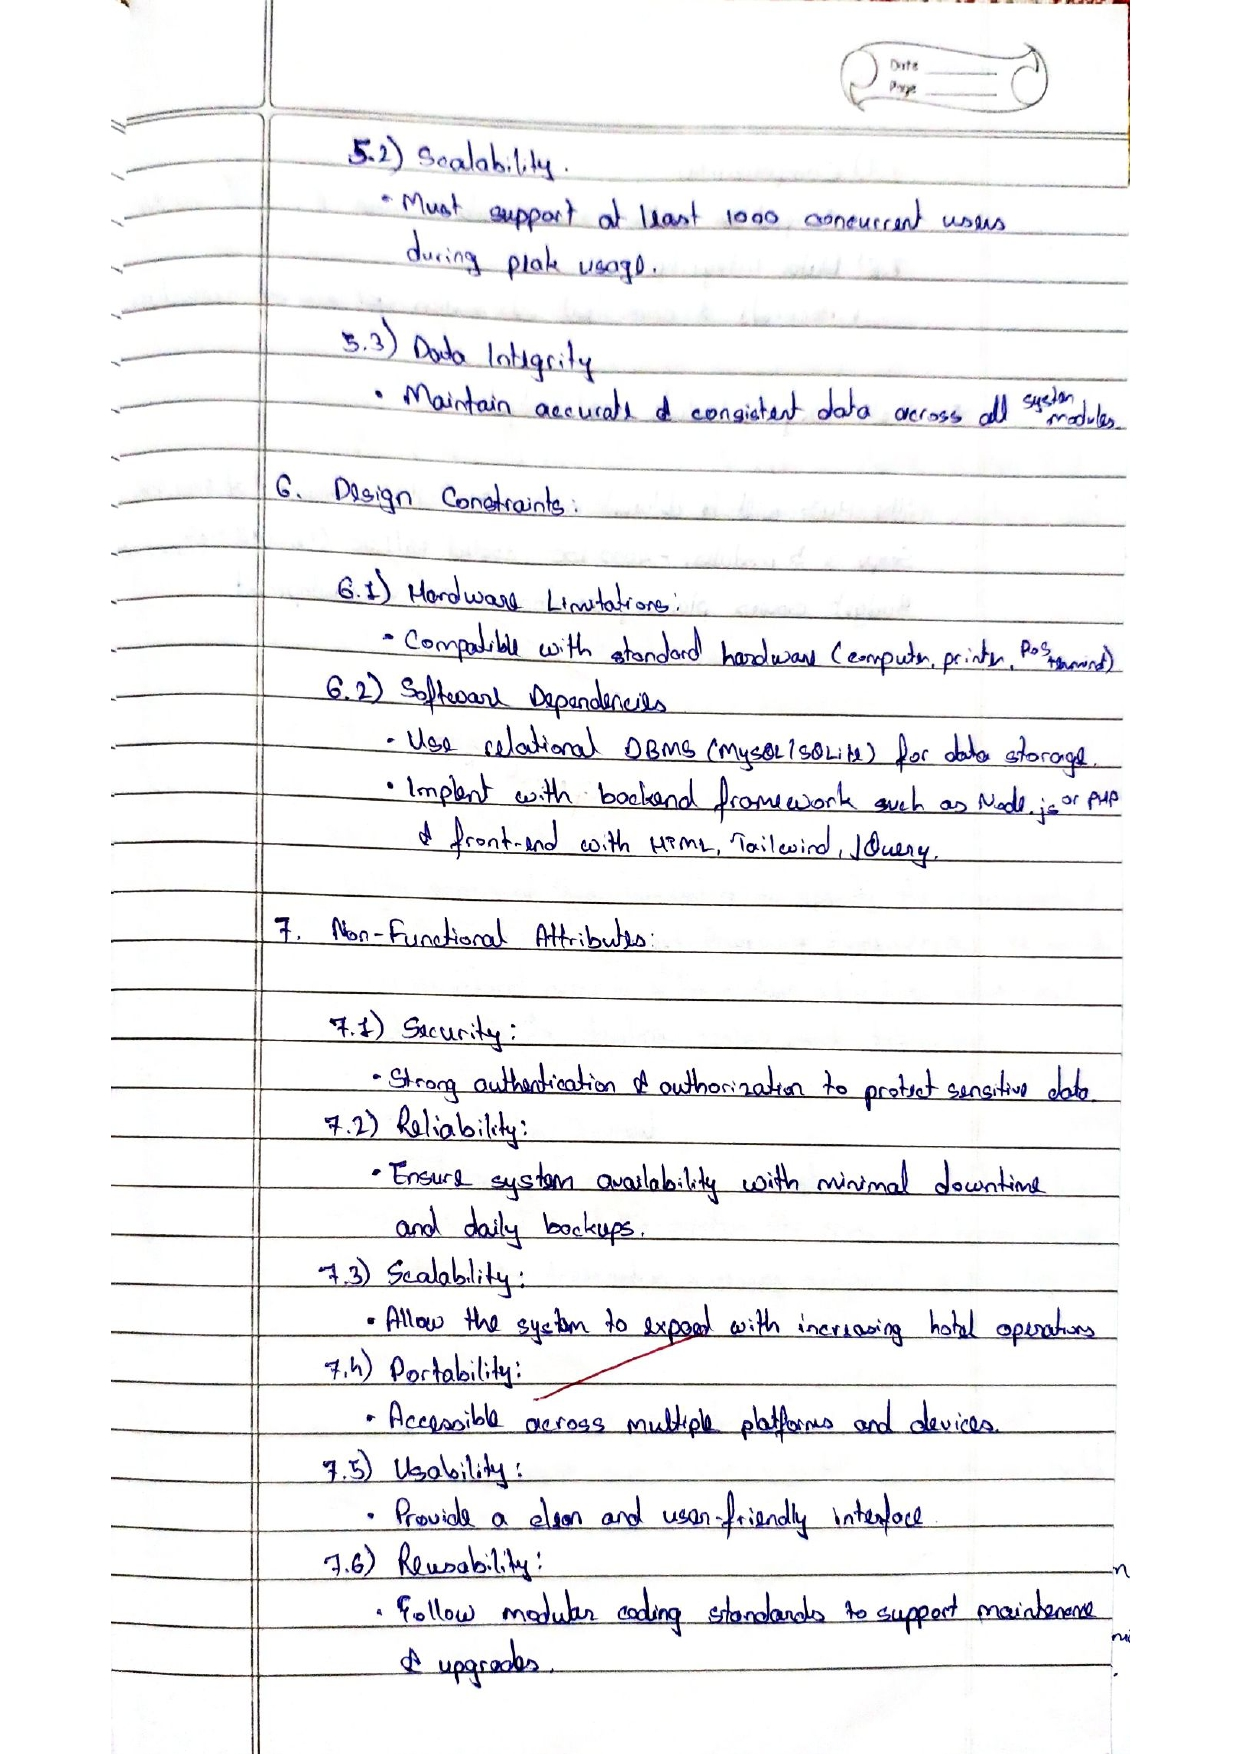 Date
Page
5.2) Scalability.
• Must support at least 1000 concurrent users
during peak usage.
5.3) Data Integrity
• Maintain accurate & consistent data across all system modules.
6. Design Constraints:
6.1) Hardware Limitations:
• Compatible with standard hardware (computer, printer, POS terminal)
6.2) Software Dependencies
• Use relational DBMS (MySQL/SQLite) for data storage.
• Implent with backend framework such as Node.js or PHP
& front-end with HTML, Tailwind, JQuery.
7. Non-Functional Attributes:
7.1) Security:
• Strong authentication & authorization to protect sensitive data.
7.2) Reliability:
• Ensure system availability with minimal downtime
and daily backups.
7.3) Scalability:
• Allow the system to expand with increasing hotel operations
7.4) Portability:
• Accessible across multiple platforms and devices.
7.5) Usability:
• Provide a clean and user-friendly interface
7.6) Reusability:
• Follow modular coding standards to support maintenance
& upgrades.